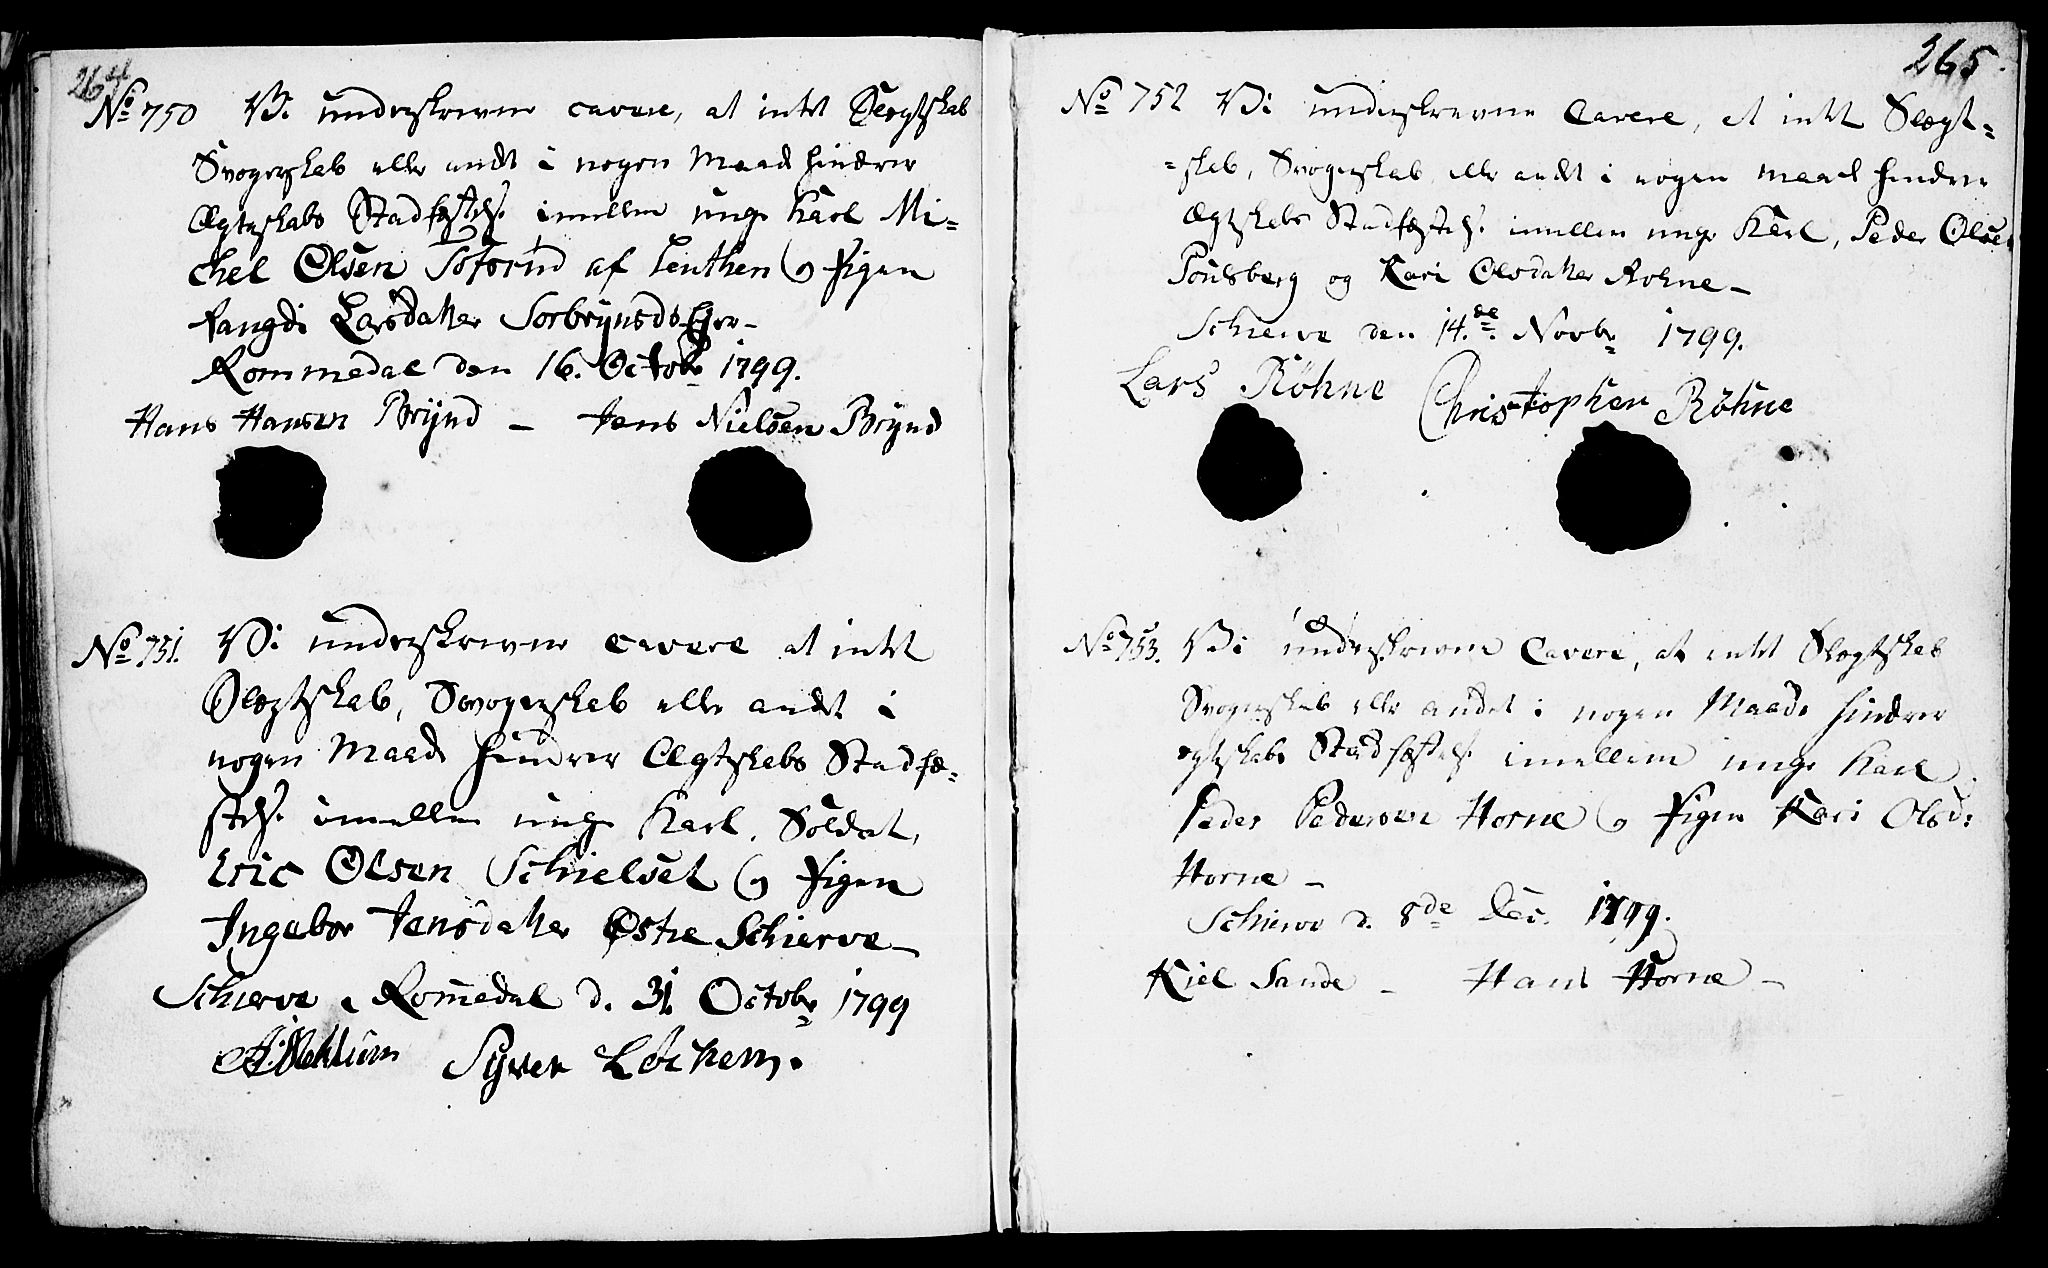 264
No 750 Vi underskrevne cavere, at intet Slegtskab
Svogerskab eller andet i nogen Maade hindrer
Ægteskabs Stadfæstelse imellem unge Karl Mi-
chel Olsen af Leuthen og Pigen
Langdi Larsdatter
Rommedal den 16. Octobr 1799.
Hans Hansen Brynd - Jens Nielsen Brynd
No 751. Vi underskrevne cavere at intet
Slegtskab, Svogerskab eller andet i
nogen Maade hindrer Ægteskabs Stadfæ-
stelse imellem unge Karl, Soldat,
Eric Olsen Schielset og Pigen
Ingebor Jensdatter Østre Schierve -
Schierve i Romedal d. 31 Octobr 1799
Syver Lóchem.
265.
No 752 Vi underskrevne Cavere, at intet Slægt=
=skab, Svogerskab eller andet i nogen Maade hindrer
Ægteskabs Stadfæstelse imellem unge Karl, Peder Olsen
Poulsberg og Kari Olsdatter Rohne -
Schierve den 14.de Novbr 1799.
Lars Röhne Christopher Röhne
No 753. Vi underskrevne Cavere, at intet Slægtskab
Svogerskab eller andet i nogen Maade hindrer
egteskabs Stadfæstelse imellem unge Karl
Peder Pedersen Horne og Pigen Kari Olsd:
Horne -
Schierve d. 8de Dec. 1799.
Kiel Sande - Hans Horne -